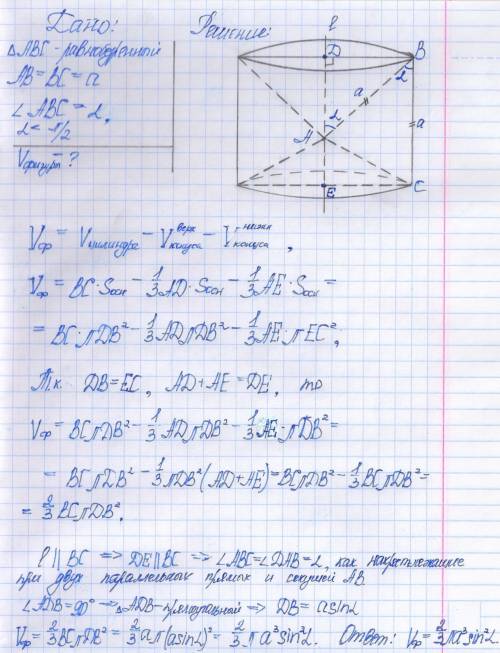 Дано:
Решение:
△ABC - равнобедренный
AB = BC = a
∠ABC = α,
α < π/2
Vфигуры - ?
l
D
B
α
a
α
a
A
E
C
Vф = Vцилиндра - Vконуса верх - Vконуса нижн,
Vф = BC·Sосн - 1/3 AD·Sосн - 1/3 AE·Sосн =
= BC·πDB² - 1/3 ADπDB² - 1/3 AE·πEC²,
Т.к. DB = EC, AD + AE = DE, то
Vф = BCπDB² - 1/3 ADπDB² - 1/3 AE·πDB² =
= BCπDB² - 1/3 πDB²(AD + AE) = BCπDB² - 1/3 BCπDB² =
= 2/3 BCπDB².
l ∥ BC => DE ∥ BC => ∠ABC = ∠DAB = α, как накрестлежащие
при двух параллельных прямых и секущей AB
∠ADB = 90° => △ADB - прямоугольный => DB = a sinα
Vф = 2/3 BCπDB² = 2/3 aπ(a sinα)² = 2/3 πa³sin²α. Ответ: Vф = 2/3 πa³sin²α.